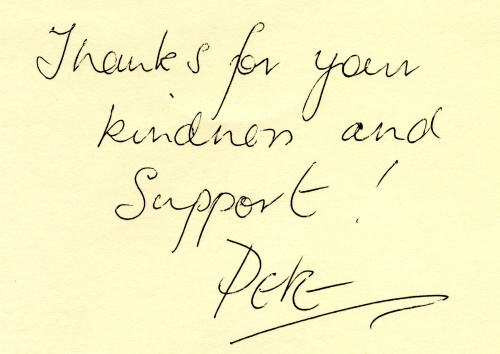 Thanks for your
kindness and
Support!
Pete